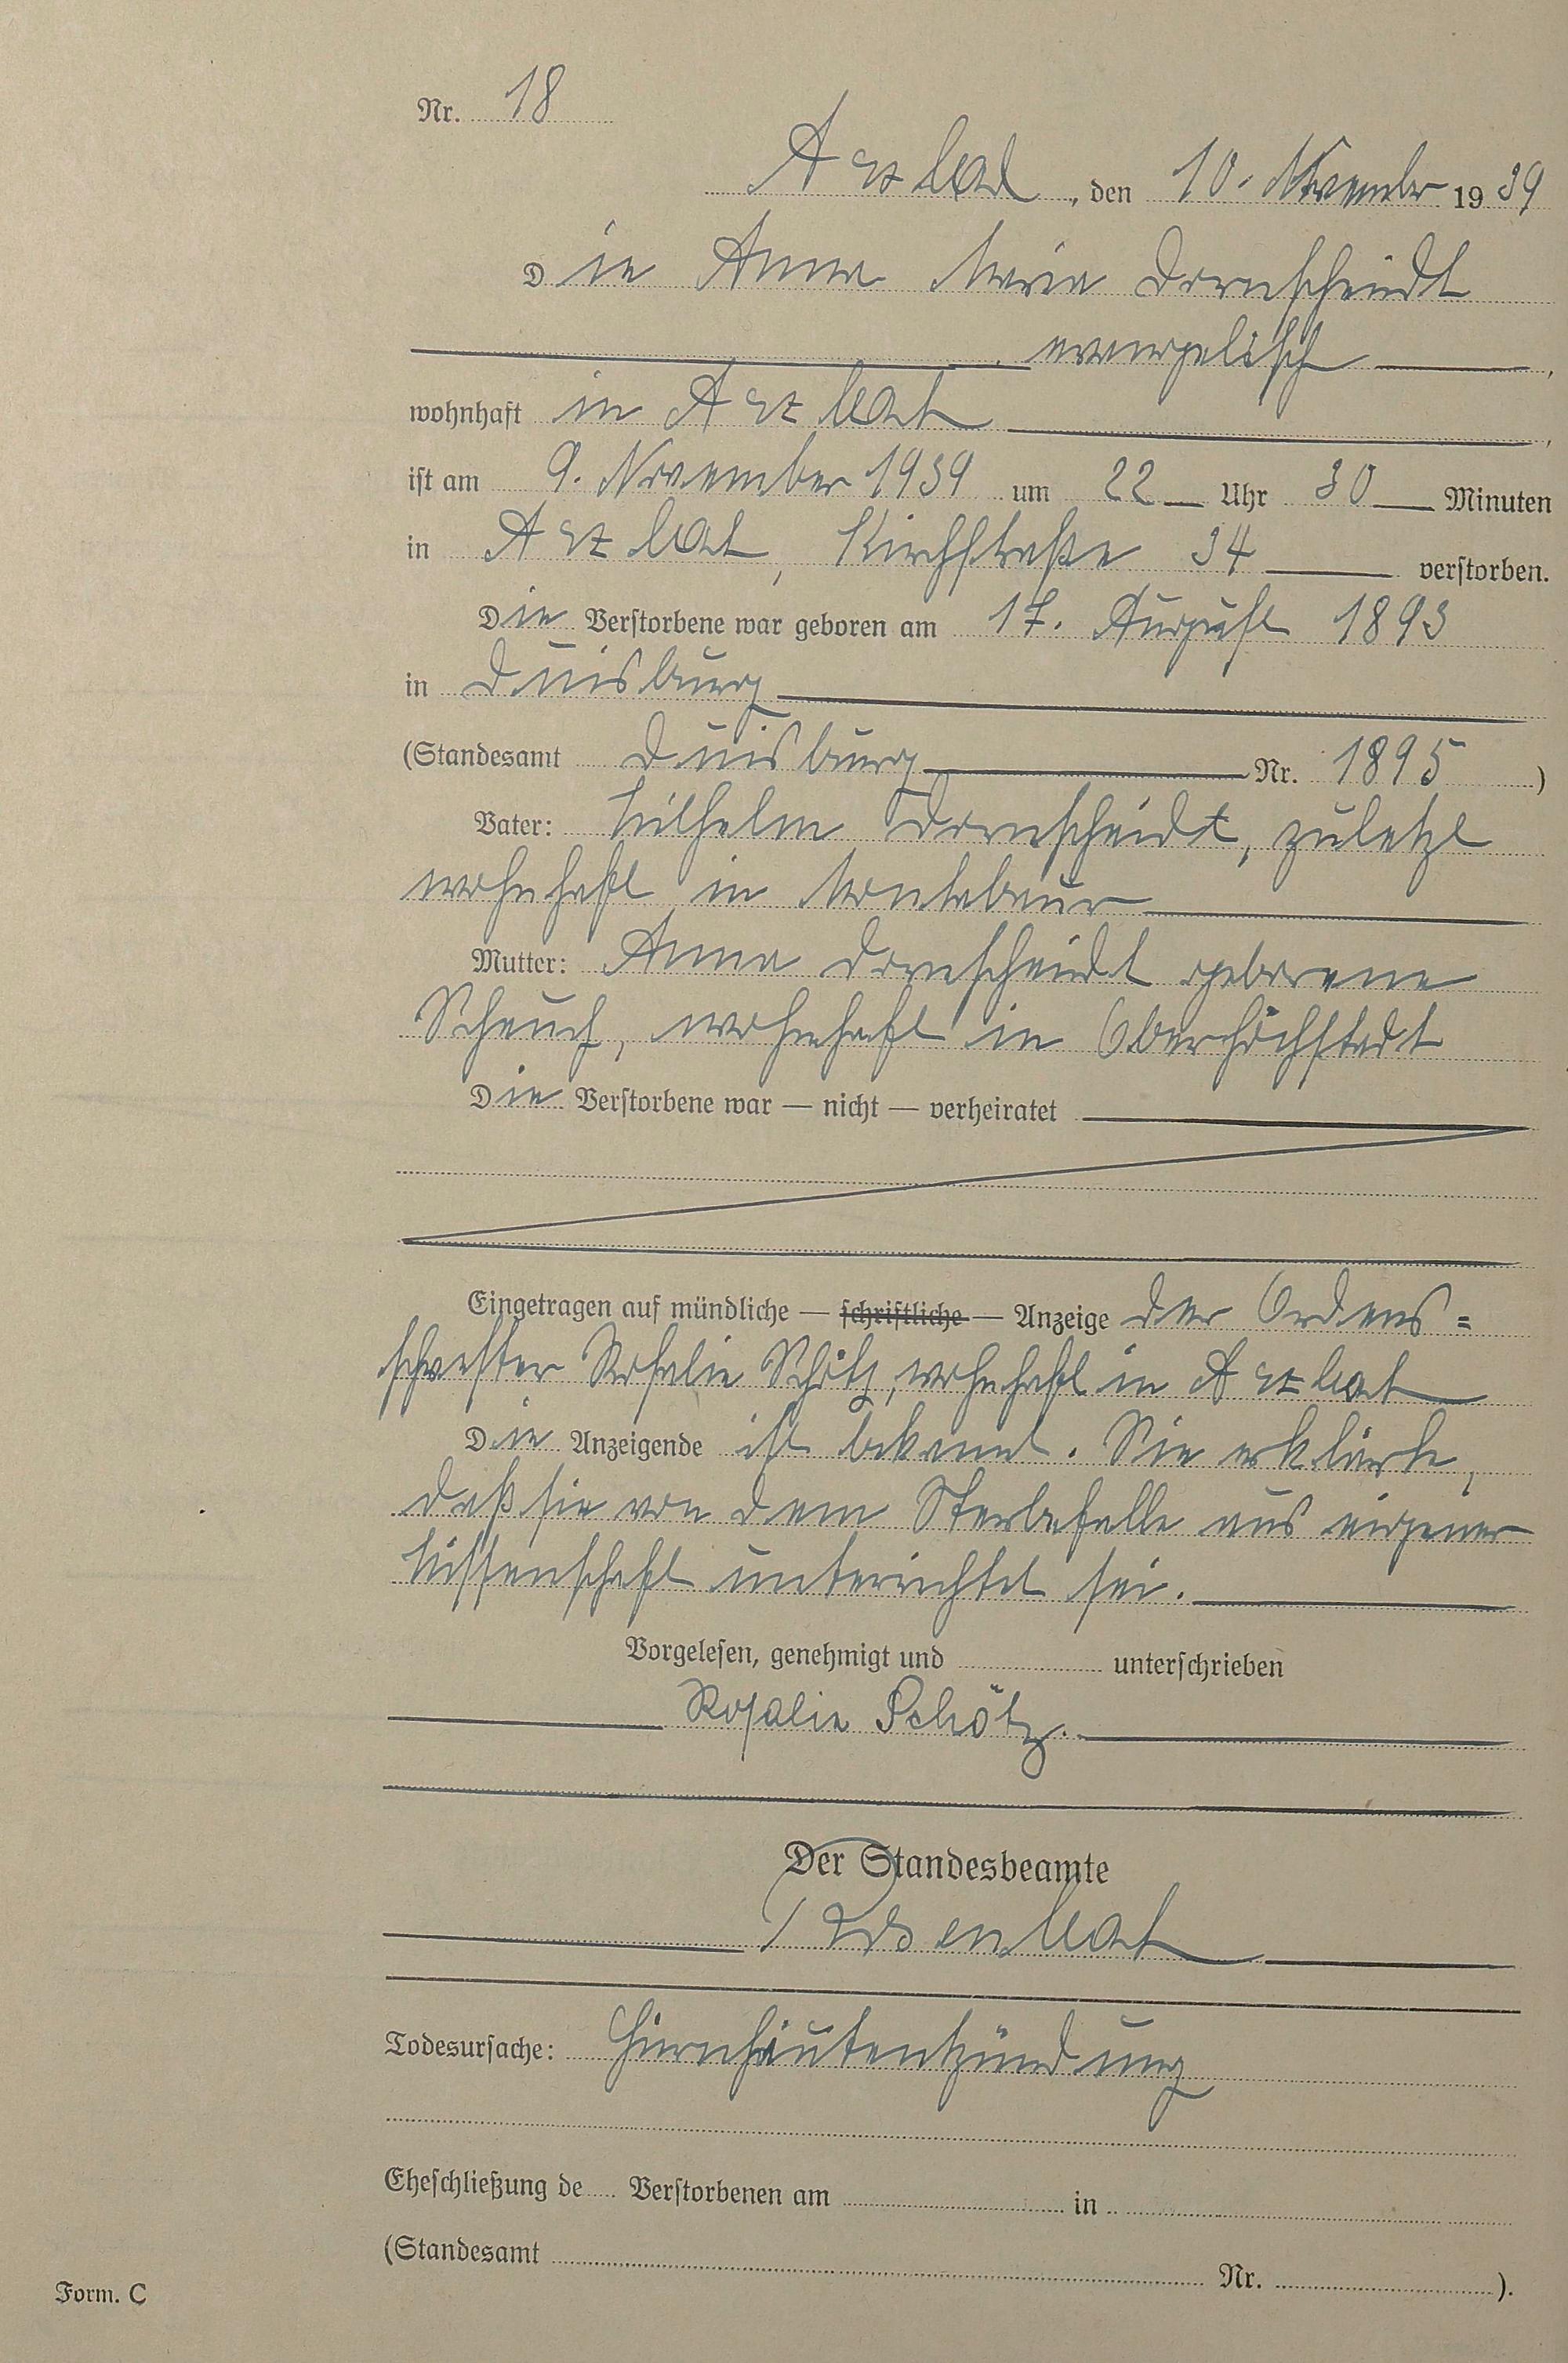 Nr. 18
Arzbach, den 10. November 1939
Die Anna Maria Dornscheidt
evangelisch,
wohnhaft in Arzbach,
ist am 9. November 1939 um 22 Uhr 30 Minuten
in Arzbach, Kirchstraße 34 verstorben.
Die Verstorbene war geboren am 17. August 1893
in Duisburg
(Standesamt Duisburg Nr. 1895)
Vater: Wilhelm Dornscheidt, zuletzt
wohnhaft in Montabaur
Mutter: Anna Dornscheidt geborene
Scheuch, wohnhaft in Oberhöchstadt
Die Verstorbene war — nicht — verheiratet
Eingetragen auf mündliche — schriftliche — Anzeige der Ordens=
schwester Rosalie Schötz, wohnhaft in Arzbach
Die Anzeigende ist bekannt. Sie erklärte,
daß sie von dem Sterbefalle aus eigener
Wissenschaft unterrichtet sei.
Vorgelesen, genehmigt und unterschrieben
Rosalie Schötz.
Der Standesbeamte
Todesursache: Hirnhäutentzündung
Eheschließung de Verstorbenen am in
(Standesamt Nr. ).
Form. C